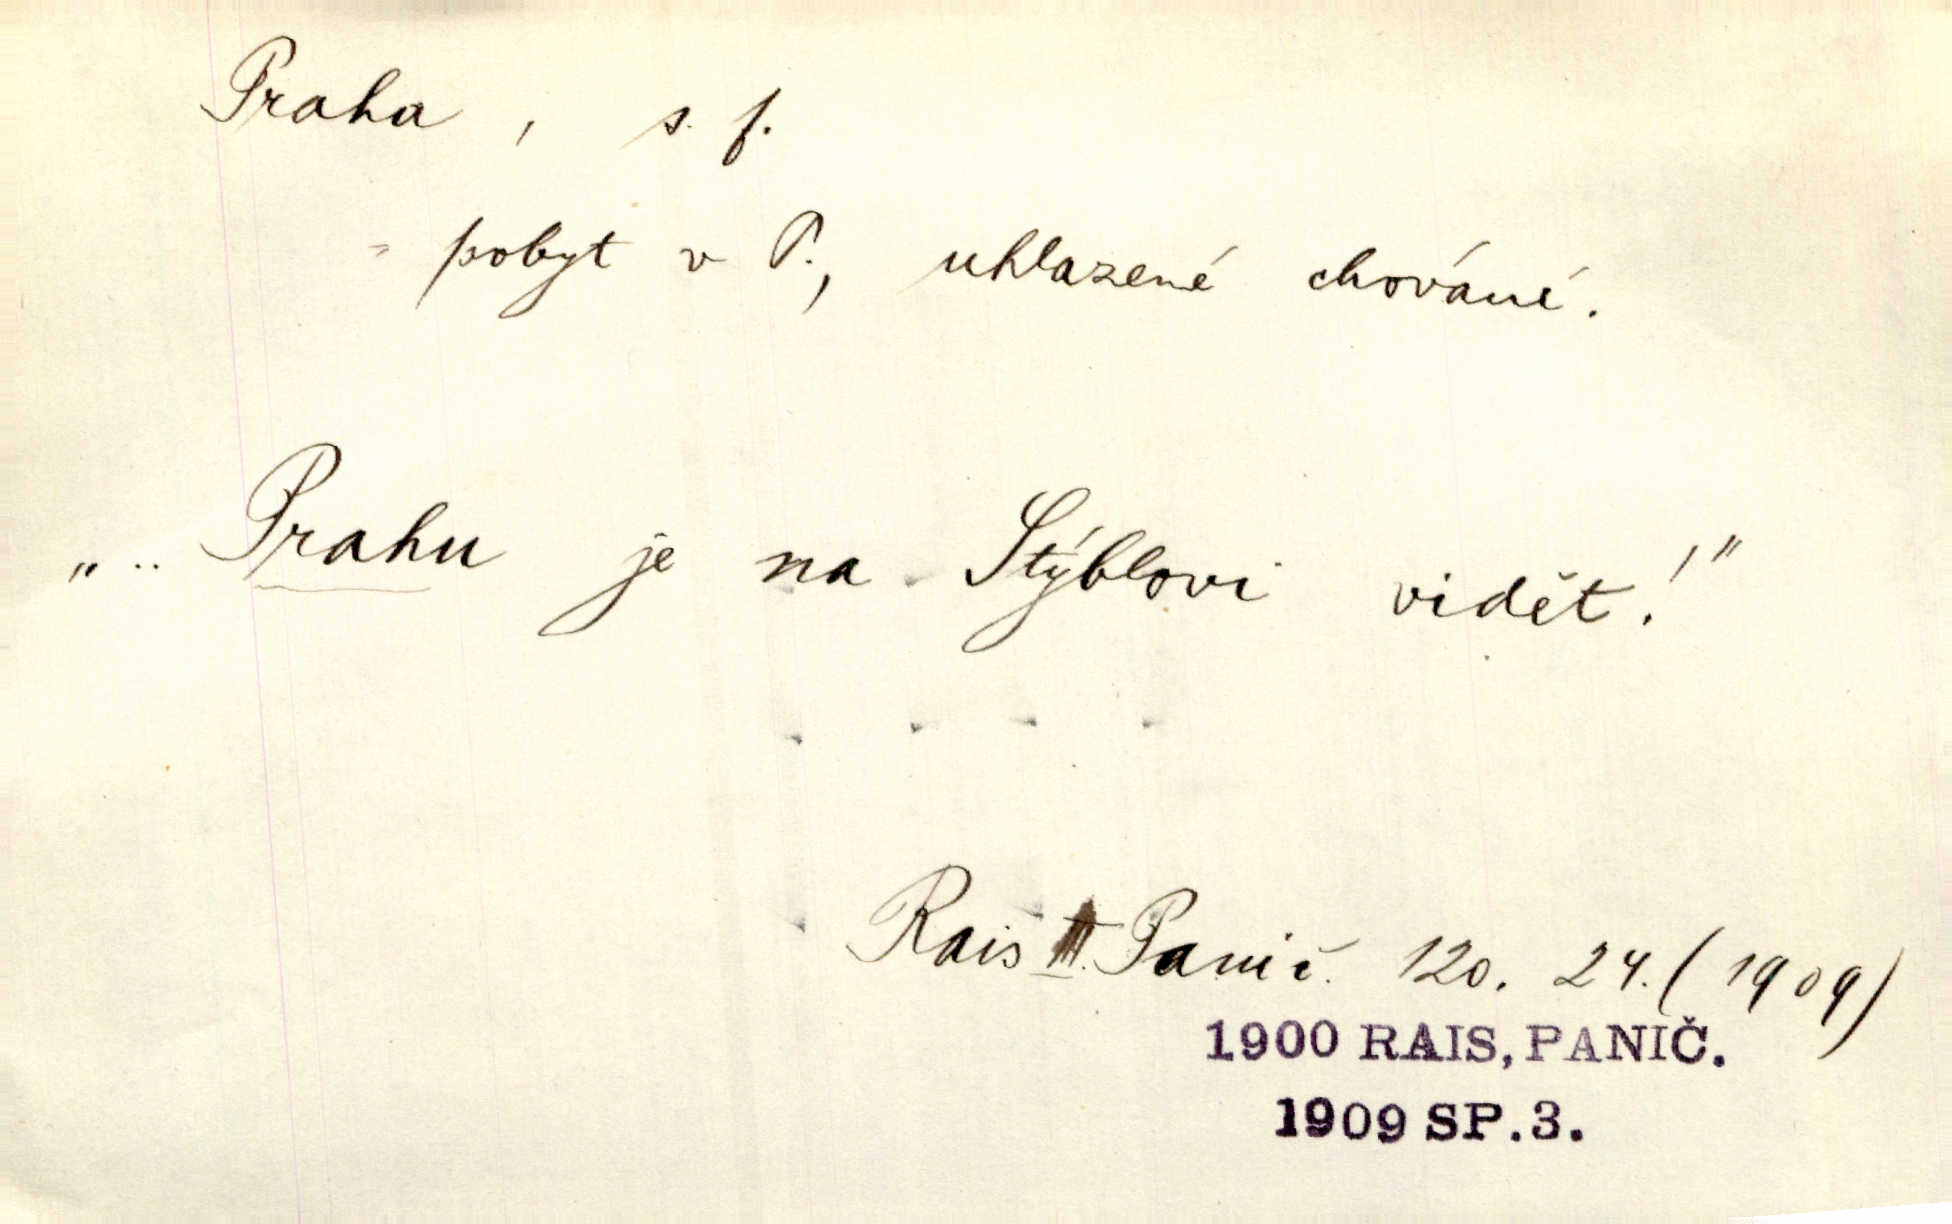 Praha, s. f.
= pobyt v P., uhlazené chování.
„.. Prahu je na Stýblovi vidět!"
Rais III. Panič. 120. 24. (1909)
1900 RAIS, PANIČ.
1909 SP.3.